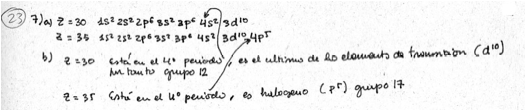 23 7) a) Z=30 1s² 2s² 2p⁶ 3s² 3p⁶ 4s² 3d¹⁰
Z=35 1s² 2s² 2p⁶ 3s² 3p⁶ 4s² 3d¹⁰ 4p⁵
b) Z=30 está en el 4º periodo, es el ultimo de los elementos de transición (d¹⁰)
por tanto grupo 12
Z=35 Está en el 4º periodo, es halogeno (p⁵) grupo 17